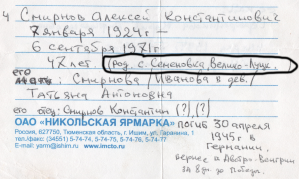 4 Смирнов Алексей Константинович
7 января 1924г –
6 сентября 1971г.
47 лет. род. с. Семеновка, Велико-Луцк.
его мать: Смирнова /Иванова в дев.
Татьяна Антоновна
его отец: Смирнов Константин (?)(?)
ОАО «НИКОЛЬСКАЯ ЯРМАРКА»
погиб 30 апреля
Россия, 627750, Тюменская область, г. Ишим, ул. Гагарина, 1
1945г в
тел./факс: (34551) 5-74-74, 5-74-75, 5-74-76, 5-74-77
Германии.
E-mail: yarm@ishim.ru www.imcto.ru
вернее в Австро-Венгрии
за 8 дн. до Победы.